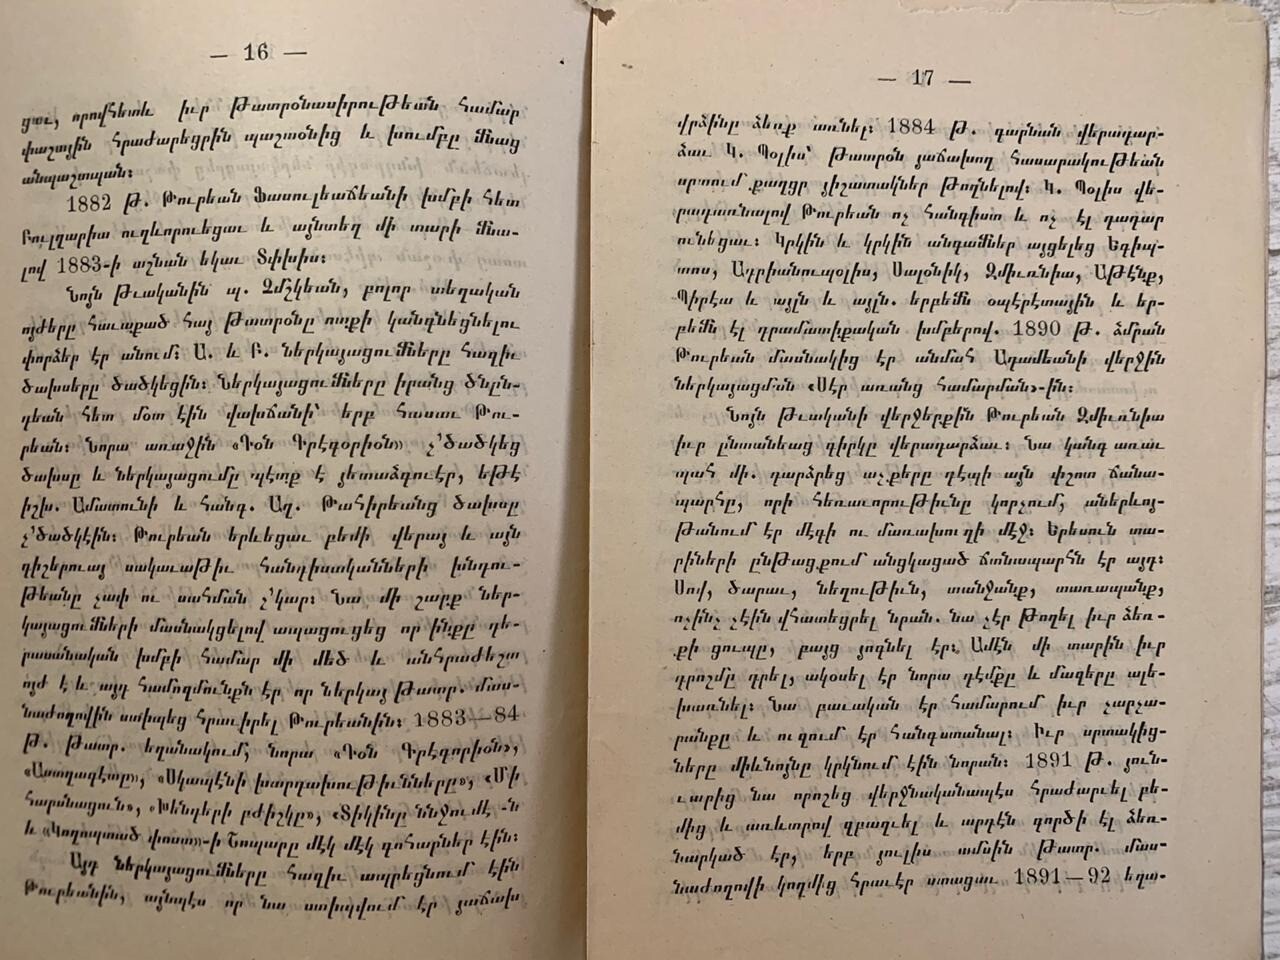 — 16 —
ցաւ, որովհետև իւր թատրօնասիրութեան համար
փաշային հրաժարեցրին պաշտօնից և խումբը մնաց
անպաշտպան։
1882 թ. Թուրեան Ֆասուլեաճեանի խմբի հետ
Բուլղարիա ուղևորուեցաւ և այնտեղ մի տարի մնա-
լով 1883-ի աշնան եկաւ Տփխիս։
Նոյն թւականին պ. Չմշկեան, բոլոր տեղական
ոյժերը հաւաքած հայ թատրօնը ոտքի կանգնեցնելու
փորձեր էր անում։ Ա. և Բ. ներկայացումները հազիւ
ծախսերը ծածկեցին։ Ներկայացումները իրանց ծնըն-
դեան հետ մօտ էին վախճանի՝ երբ հասաւ Թու-
րեան։ Նորա առաջին «Դօն Գրէգօրիօն» չ՚ծածկեց
ծախսը և ներկայացումը պէտք է յետաձգուէր, եթէ
իշխ. Ամատունի և հանգ. Աղ. Թահիրեանց ծախսը
չ՚ծածկէին։ Թուրեան երևեցաւ բեմի վերայ և այն
գիշերուայ սակաւաթիւ հանդիսականների խնդու-
թեանը չափ ու սահման չ՚կար։ Նա մի շարք ներ-
կայացումների մասնակցելով ապացուցեց որ ինքը դե-
րասանական խմբի համար մի մեծ և անհրաժեշտ
ոյժ է և այդ համոզմունքն էր որ ներկայ թատր. մաս-
նաժողովին ստիպեց հրաւիրել Թուրեանին։ 1883—84
թ. թատր. եղանակում, նորա «Դօն Գրէգորիօն»,
«Աստղագէտը», «Սկապէնի խարդախութիւնները», «Մի
հարսնացուն», «Խենդերի բժիշկը», «Տիկինը ննջում է»-ն
և «Կողոպտած փոստ»-ի Շոպարը մէկ մէկ գոհարներ էին։
Այդ ներկայացումները հազիւ ապրեցնում էին
Թուրեանին, այնպէս որ նա ստիպվում էր յաճախ
— 17 —
վրձինը ձեռք առնել։ 1884 թ. գարնան վերադար-
ձաւ Կ. Պօլիս՝ թատրօն յաճախող հասարակութեան
սրտում քաղցր յիշատակներ թողնելով։ Կ. Պօլիս վե-
րադառնալով Թուրեան ոչ հանգիստ և ոչ էլ դադար
ունեցաւ։ Կրկին և կրկին անգամներ այցելեց Եգիպ-
տոս, Ադրիանուպօլիս, Սալօնիկ, Զմիւռնիա, Աթէնք,
Պիրէա և այլն և այլն. երբեմն օպէրէտային և եր-
բեմն էլ դրամատիքական խմբերով. 1890 թ. ձմրան
Թուրեան մասնակից էր անմահ Ադամեանի վերջին
ներկայացման «Սէր առանց համարման»-ին։
Նոյն թւականի վերջերքին Թուրեան Զմիւռնիա
իւր ընտանեաց գիրկը վերադարձաւ։ Նա կանգ առաւ
պահ մի. դարձրեց աչքերը դէպի այն փշոտ ճանա-
պարհը, որի հեռաւորութիւնը կորչում, աներևոյ-
թանում էր մէգի ու մառախուղի մէջ։ Երեսուն տա-
րիների ընթացքում անցկացած ճանապարհն էր այդ։
Սով, ծարաւ, նեղութիւն, տանջանք, տառապանք,
ոչինչ չէին վհատեցրել նրան. նա չէր թողել իւր ձեռ-
քի ցուպը, բայց յոգնել էր։ Ամէն մի տարին իւր
դրոշմը դրել, ակօսել էր նորա դէմքը և մազերը ալե-
խառնել։ Նա բաւական էր համարում իւր չարչա-
րանքը և ուզում էր հանգստանալ։ Իւր սրտակից-
ները միևնոյնը կրկնում էին նորան։ 1891 թ. յուն-
ւարից նա որոշեց վերջնականապէս հրաժարւել բե-
մից և առևտրով զբաղւել և արդէն գործի էլ ձեռ-
նարկած էր, երբ յուլիս ամսին թատր. մաս-
նաժողովի կողմից հրաւէր ստացաւ 1891—92 եղա-